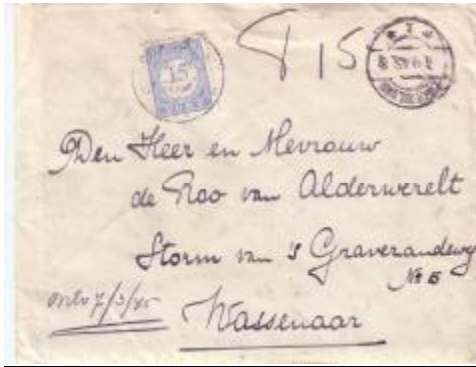 T 15
15
Den Heer en Mevrouw
de Roo van Alderwerelt
Storm van 's Gravesandeweg
No 5
Wassenaar